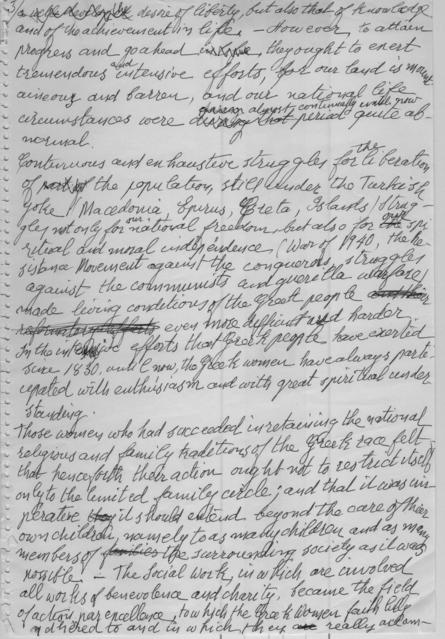 3) desire of liberty, but also that of knowledge
and of the achievement in life. - However, to attain
progress and go ahead they ought to exert
tremendous and intensive efforts, for our land is mount
aineous and barren, and our national life
circumstances were during that period quite ab-
normal.
Continuous and exhaustive struggles for the liberation
of the population still under the Turkish
yoke (Macedonia, Epirus, Creta, Islands) strug-
gles not only for our national freedom, but also for our spi
ritual and moral independence (War of 1940, the Re
sistance Movement against the conquerors, struggles
against the communists and guerilla warfare)
made living conditions of the Greek people
even more difficult and harder.
In the intensive efforts that Greek people have exerted
since 1830, until now, the Greek women have always parti
cipated with enthusiasm and with great spiritual under
standing.
Those women who had succeeded in retaining the national
religious and family traditions of the Greek race felt
that henceforth their action ought not to restrict itself
only to the limited family circle; and that it was im-
perative it should extend beyond the care of their
own children, namely to as many children and as many
members of the surrounding society as it was
possible. - The Social Work, in which are involved
all works of benevolence and charity, became the field
of action, par excellence, to which the Greek Women faith fully
adhered to and in which they really accom-